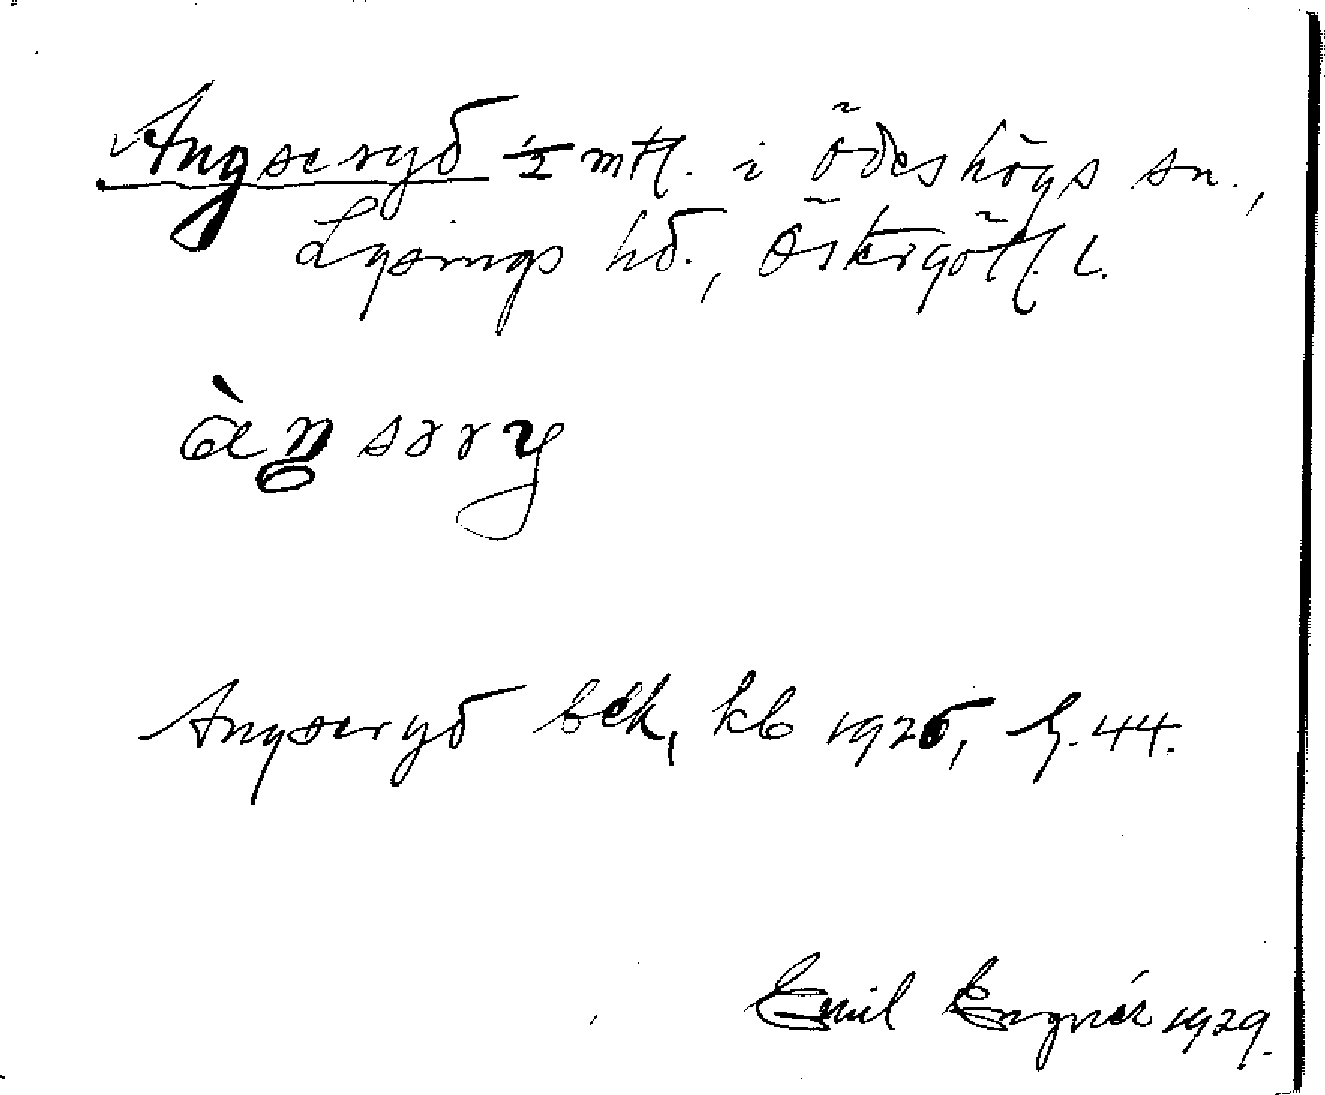 Angseryd 1/2 mtl. i Ödeshögs sn.,
Lysings hd., Östergötl. l.
àŋsəry
Angseryd bek, kb 1926, h. 44.
Emil Engnér 1929.